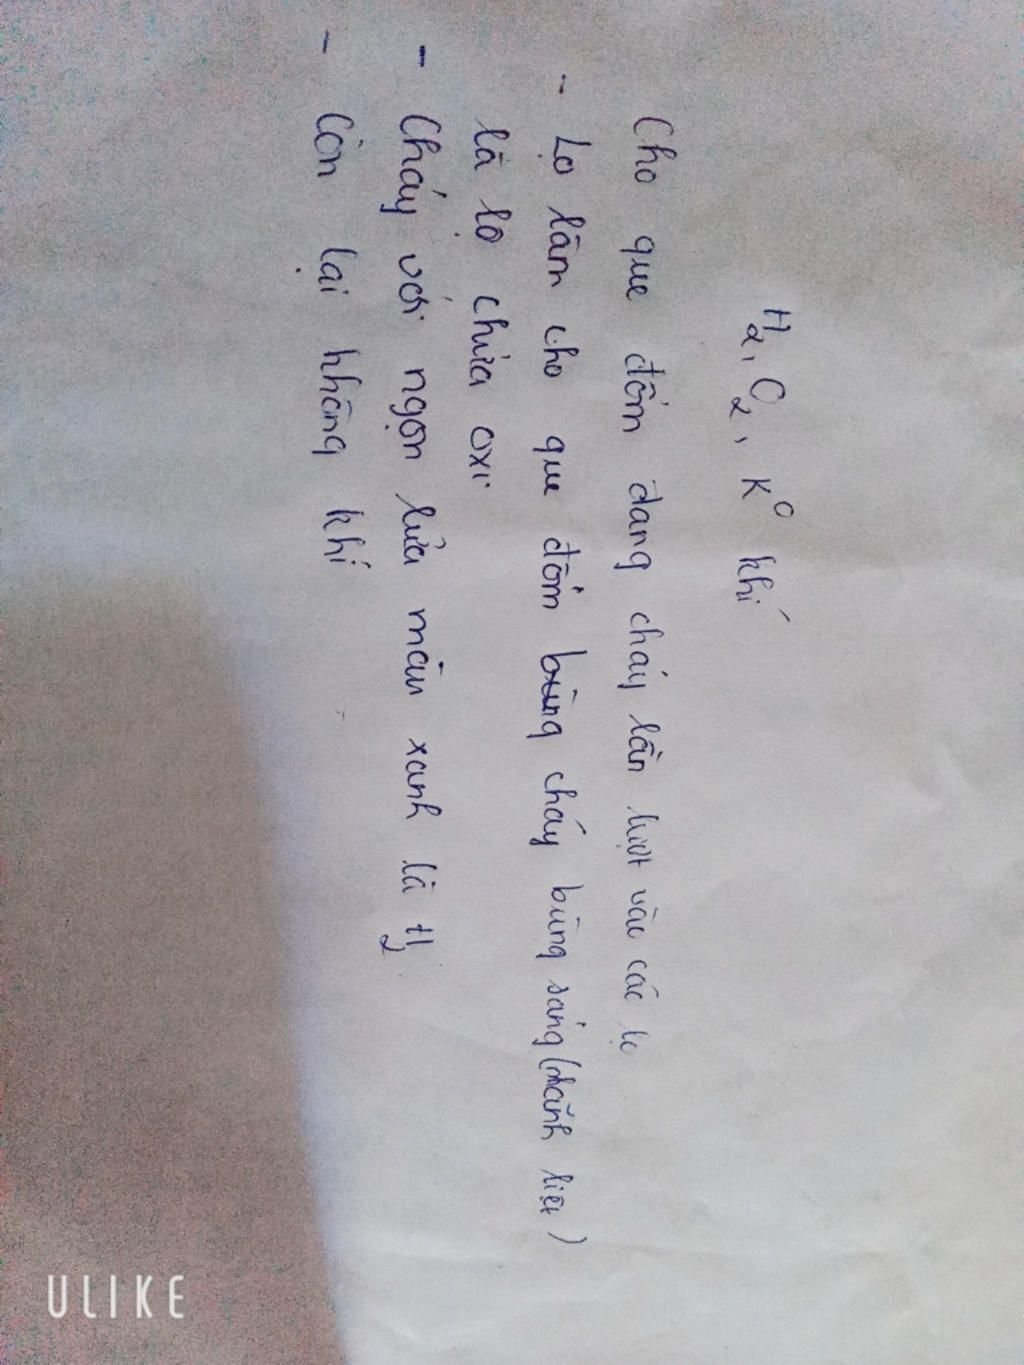 H₂, O₂, K⁰ khí
Cho que đóm đang cháy lần lượt vào các lọ
- Lọ làm cho que đóm bùng cháy bùng sáng (mãnh liệt)
là lọ chứa oxi
- Cháy với ngọn lửa màu xanh là H₂
- Còn lại không khí
ULIKE